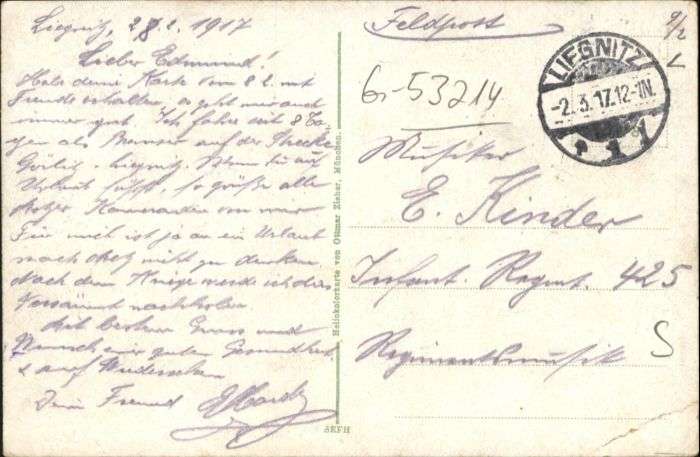 Liegnitz, 28.2.1917
Lieber Edmund!
Habe deine Karte vom 8 2. mit
Freude erhalten, es geht mir auch
immer gut. Ich fahre seit 8 Ta-
gen als Bremser auf der Strecke
Görlitz - Liegnitz. Wenn du auf
Urlaub fährst, so grüße alle
Kameraden von mir
Für mich ist ja an ein Urlaub
nach nicht zu denken.
Nach dem Kriege werde ich dies
Versäumt nachholen
Mit besten Gruss und
Wunsch einer guten Gesundheit
& auf Wiedersehen
Dein Freund
Heliokolorkarte von Ottmar Zieher, München.
Feldpost
9/2
L
LIEGNITZ
-2.3.17.12-1N.
* 1 1
G-53214
Musiker
E. Kinder
Infant. Regmt. 425
S
Regimentsmusik